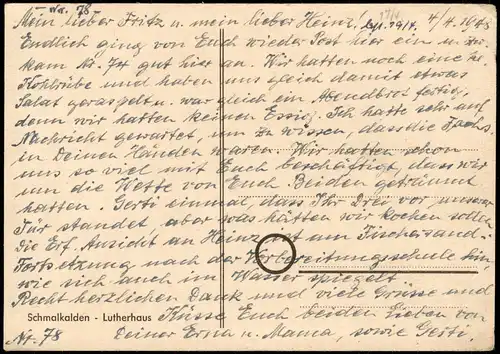 - Nr. 78 -
Mein lieber Fritz u. mein lieber Heinz! 4/4. 1948
Endlich ging von Euch wieder Post hier ein u. zw.
kam Nr. 74 gut hier an. Wir hatten noch eine kl.
Kohlrübe und haben uns gleich damit etwas
Salat geraspelt u. war gleich ein Abendbrot fertig,
denn wir hatten keinen Essig. Ich hatte sehr auf
Nachricht gewartet, um zu wissen, dass die
in Deinen Händen waren. Wir hatten schon
uns so viel mit Euch beschäftigt, dass wir
um die Wette von Euch Beiden geträumt
hatten. Gerti einmal, dass Ihr Drei vor unserer
Tür standet, aber was hätten wir kochen sollen.
Die Erf. Ansicht an Heinz ist am Fischersand-
Fortsetzung nach der Vorbereitungsschule hin,
wie sich auch im Wasser spiegelt.
Recht herzlichen Dank und viele Grüsse und
Schmalkalden - Lutherhaus
Küsse Euch beiden Lieben von
Nr. 78
Deiner Erna u. Mama, sowie Gerti.